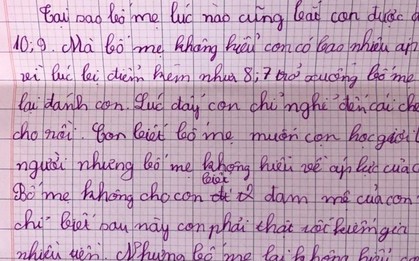 Tại sao bố mẹ lúc nào cũng bắt con được
10; 9. Mà bố mẹ không hiểu con có bao nhiêu áp
vì lúc bị điểm kém như 8; 7 trở xuống bố mẹ
lại đánh con. Lúc đấy con chỉ nghĩ đến cái ch
cho rồi. Con biết bố mẹ muốn con học giỏi
người nhưng bố mẹ không hiểu về áp lực của c
Bố mẹ không cho con biết đam mê của con
chỉ biết sau này con phải thật kiếm
nhiều tiền. Nhưng bố mẹ lại không hiểu